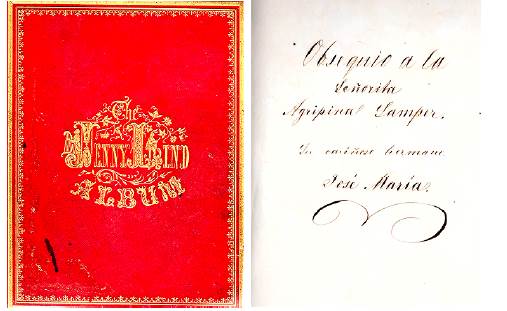 The
JENNY LIND
ALBUM
Obsequio a la
Señorita
Agripina Samper.
Su cariñoso hermano
José María.